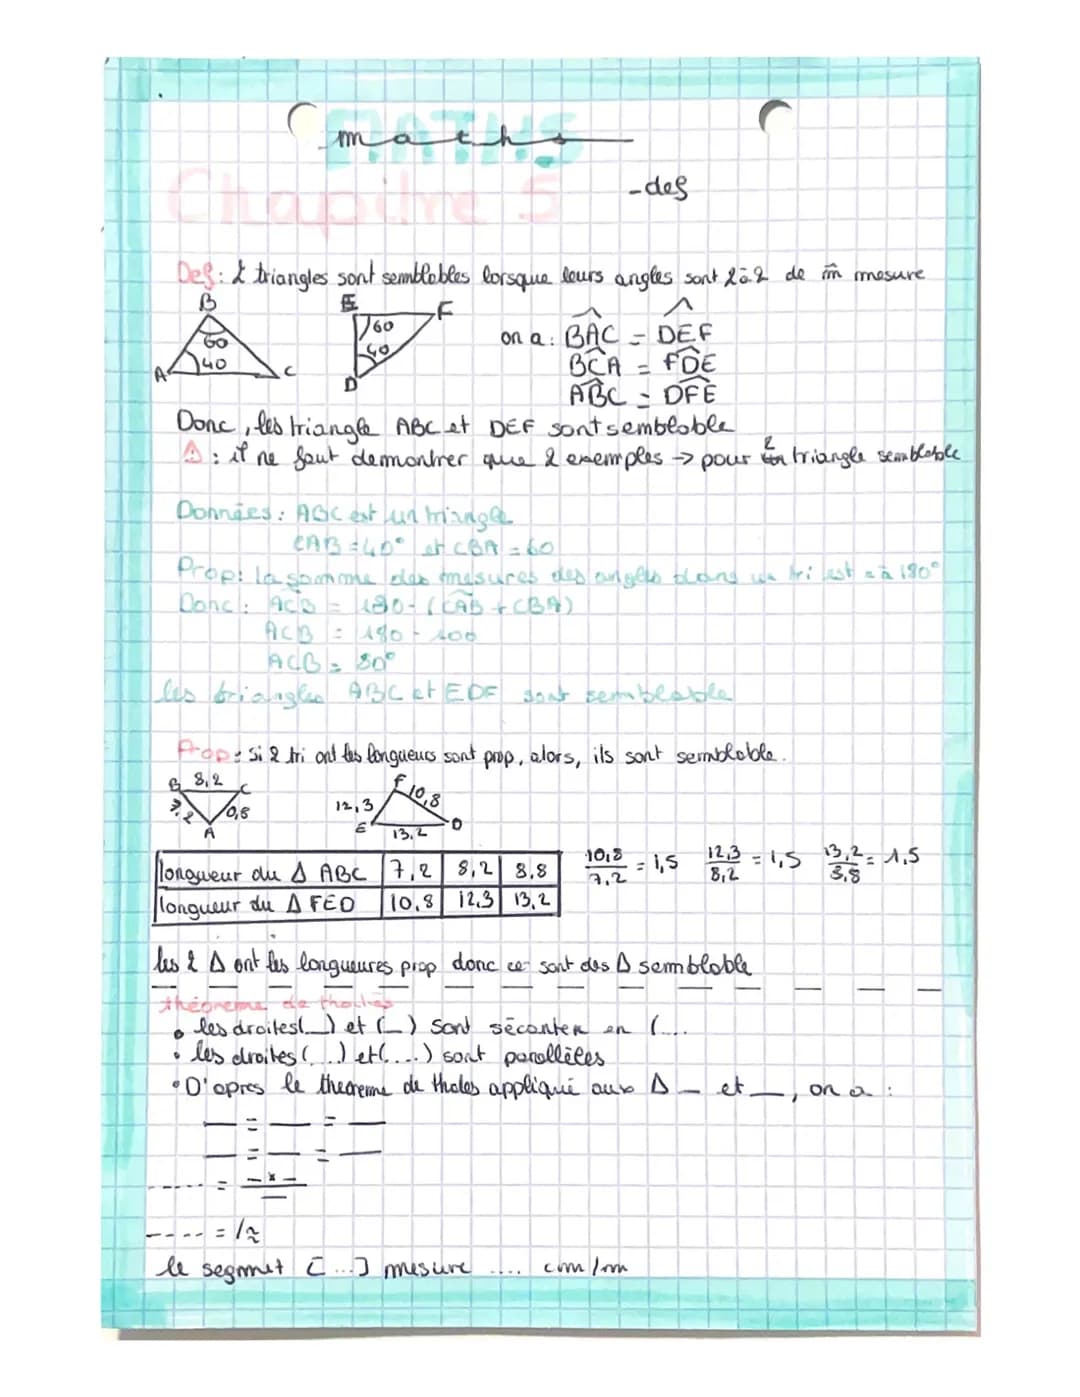 MATHS
maths
Chapitre 5
-def
Def: 2 triangles sont semblables lorsque leurs angles sont 2à2 de m̂ mesure
B
60
40
A
C
E
F
60
40
D
on a: B̂AC = DÊF
BĈA = FD̂E
AB̂C = DF̂E
Donc, les triangle ABC et DEF sont semblable
⚠ : il ne faut demontrer que 2 exemples → pour 2 triangle semblable
Données: ABC est un triangle
CAB = 40° et CBA = 60
Prop: la somme des mesures des angles dans un tri est = à 180°
Donc: ACB = 180-(CAB + CBA)
ACB = 180 - 100
ACB = 80°
les triangles ABC et EDF sont semblable
Prop: Si 2 tri ont les longueurs sont prop, alors, ils sont semblable.
B 8,2 C
7,2
0,8
A
F
10,8
12,3
E
13,2
D
longueur du Δ ABC 7,2 8,2 8,8
longueur du Δ FED 10,8 12,3 13,2
10,8/7,2 = 1,5 12,3/8,2 = 1,5 13,2/8,8 = 1,5
les 2 Δ ont les longueures prop donc ce sont des Δ semblable
théoreme de thales
• les droites(...) et (...) sont sécantes en (....
• les droites (...) et(....) sont parallèles
• D'apres le theoreme de thales appliqué aux Δ _ et _, on a :
__ = __ = __
__ = __ = __
..... = _x_
---- = /≈
le segmet [...] mesure .... cm/m